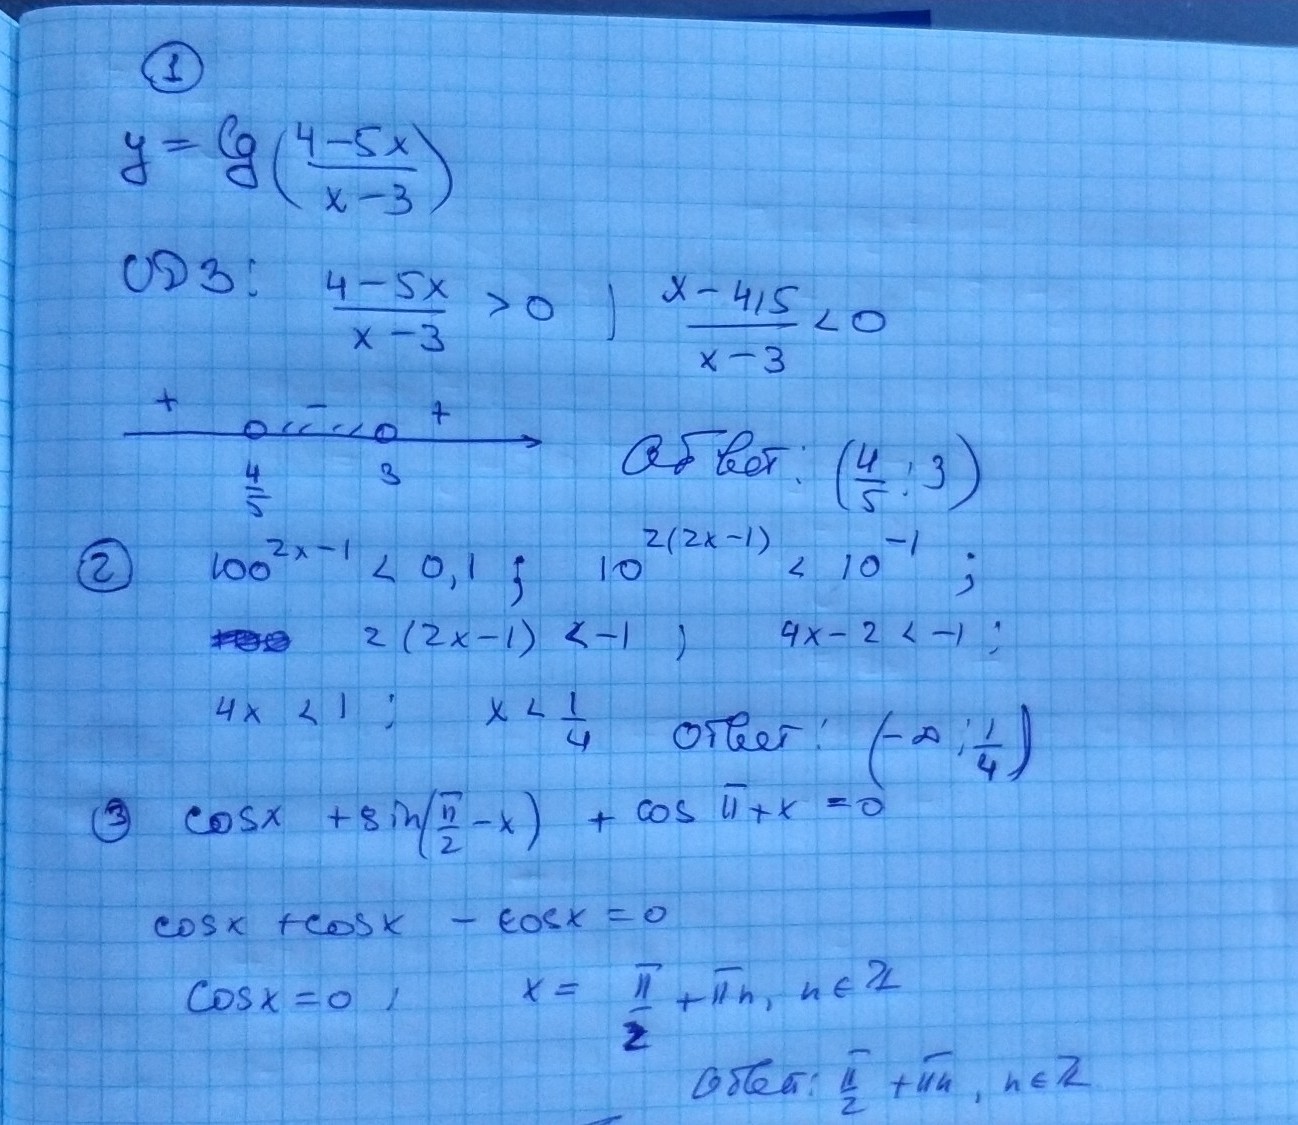 1
y = lg((4-5x)/(x-3))
ОДЗ: (4-5x)/(x-3) > 0 ; (x-4/5)/(x-3) < 0
+ - +
4/5 3
Ответ: (4/5; 3)
2 100^(2x-1) < 0,1 ; 10^(2(2x-1)) < 10^(-1) ;
2(2x-1) < -1 ; 4x-2 < -1 ;
4x < 1 ; x < 1/4 Ответ: (-∞; 1/4)
3 cosx + sin(π/2 - x) + cos π+x = 0
cosx + cosx - cosx = 0
cosx = 0 ; x = π/2 + πn, n∈Z
Ответ: π/2 + πn, n∈Z